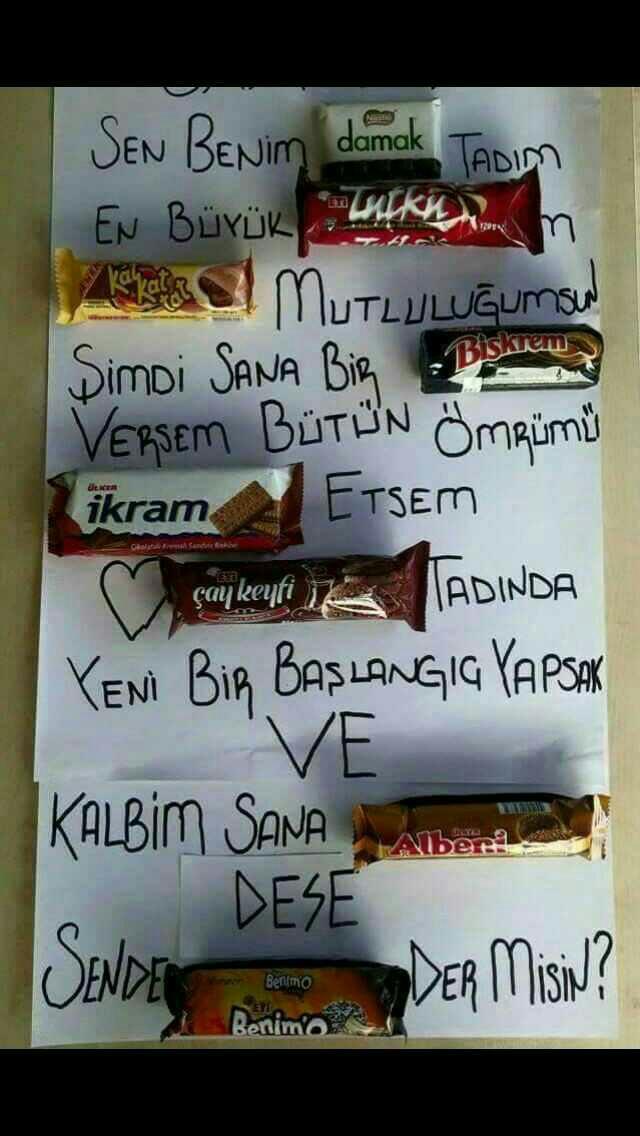 SEN BENİM Nestle damak TADIM
EN BÜYÜK ETİ Tutku 120g M
Kat kat tat MUTLULUĞUMSUN
ŞİMDİ SANA BİR Biskrem
VERSEM BÜTÜN ÖMRÜMÜ
ÜLKER ikram Çikolatalı Kremalı Sandviç Bisküvi ETSEM
ETİ çay keyfi TADINDA
YENİ BİR BAŞLANGIÇ YAPSAK
VE
KALBİM SANA ÜLKER Albeni
DESE
SENDE Benim'O ETİ Benim'O DER MİSİN?